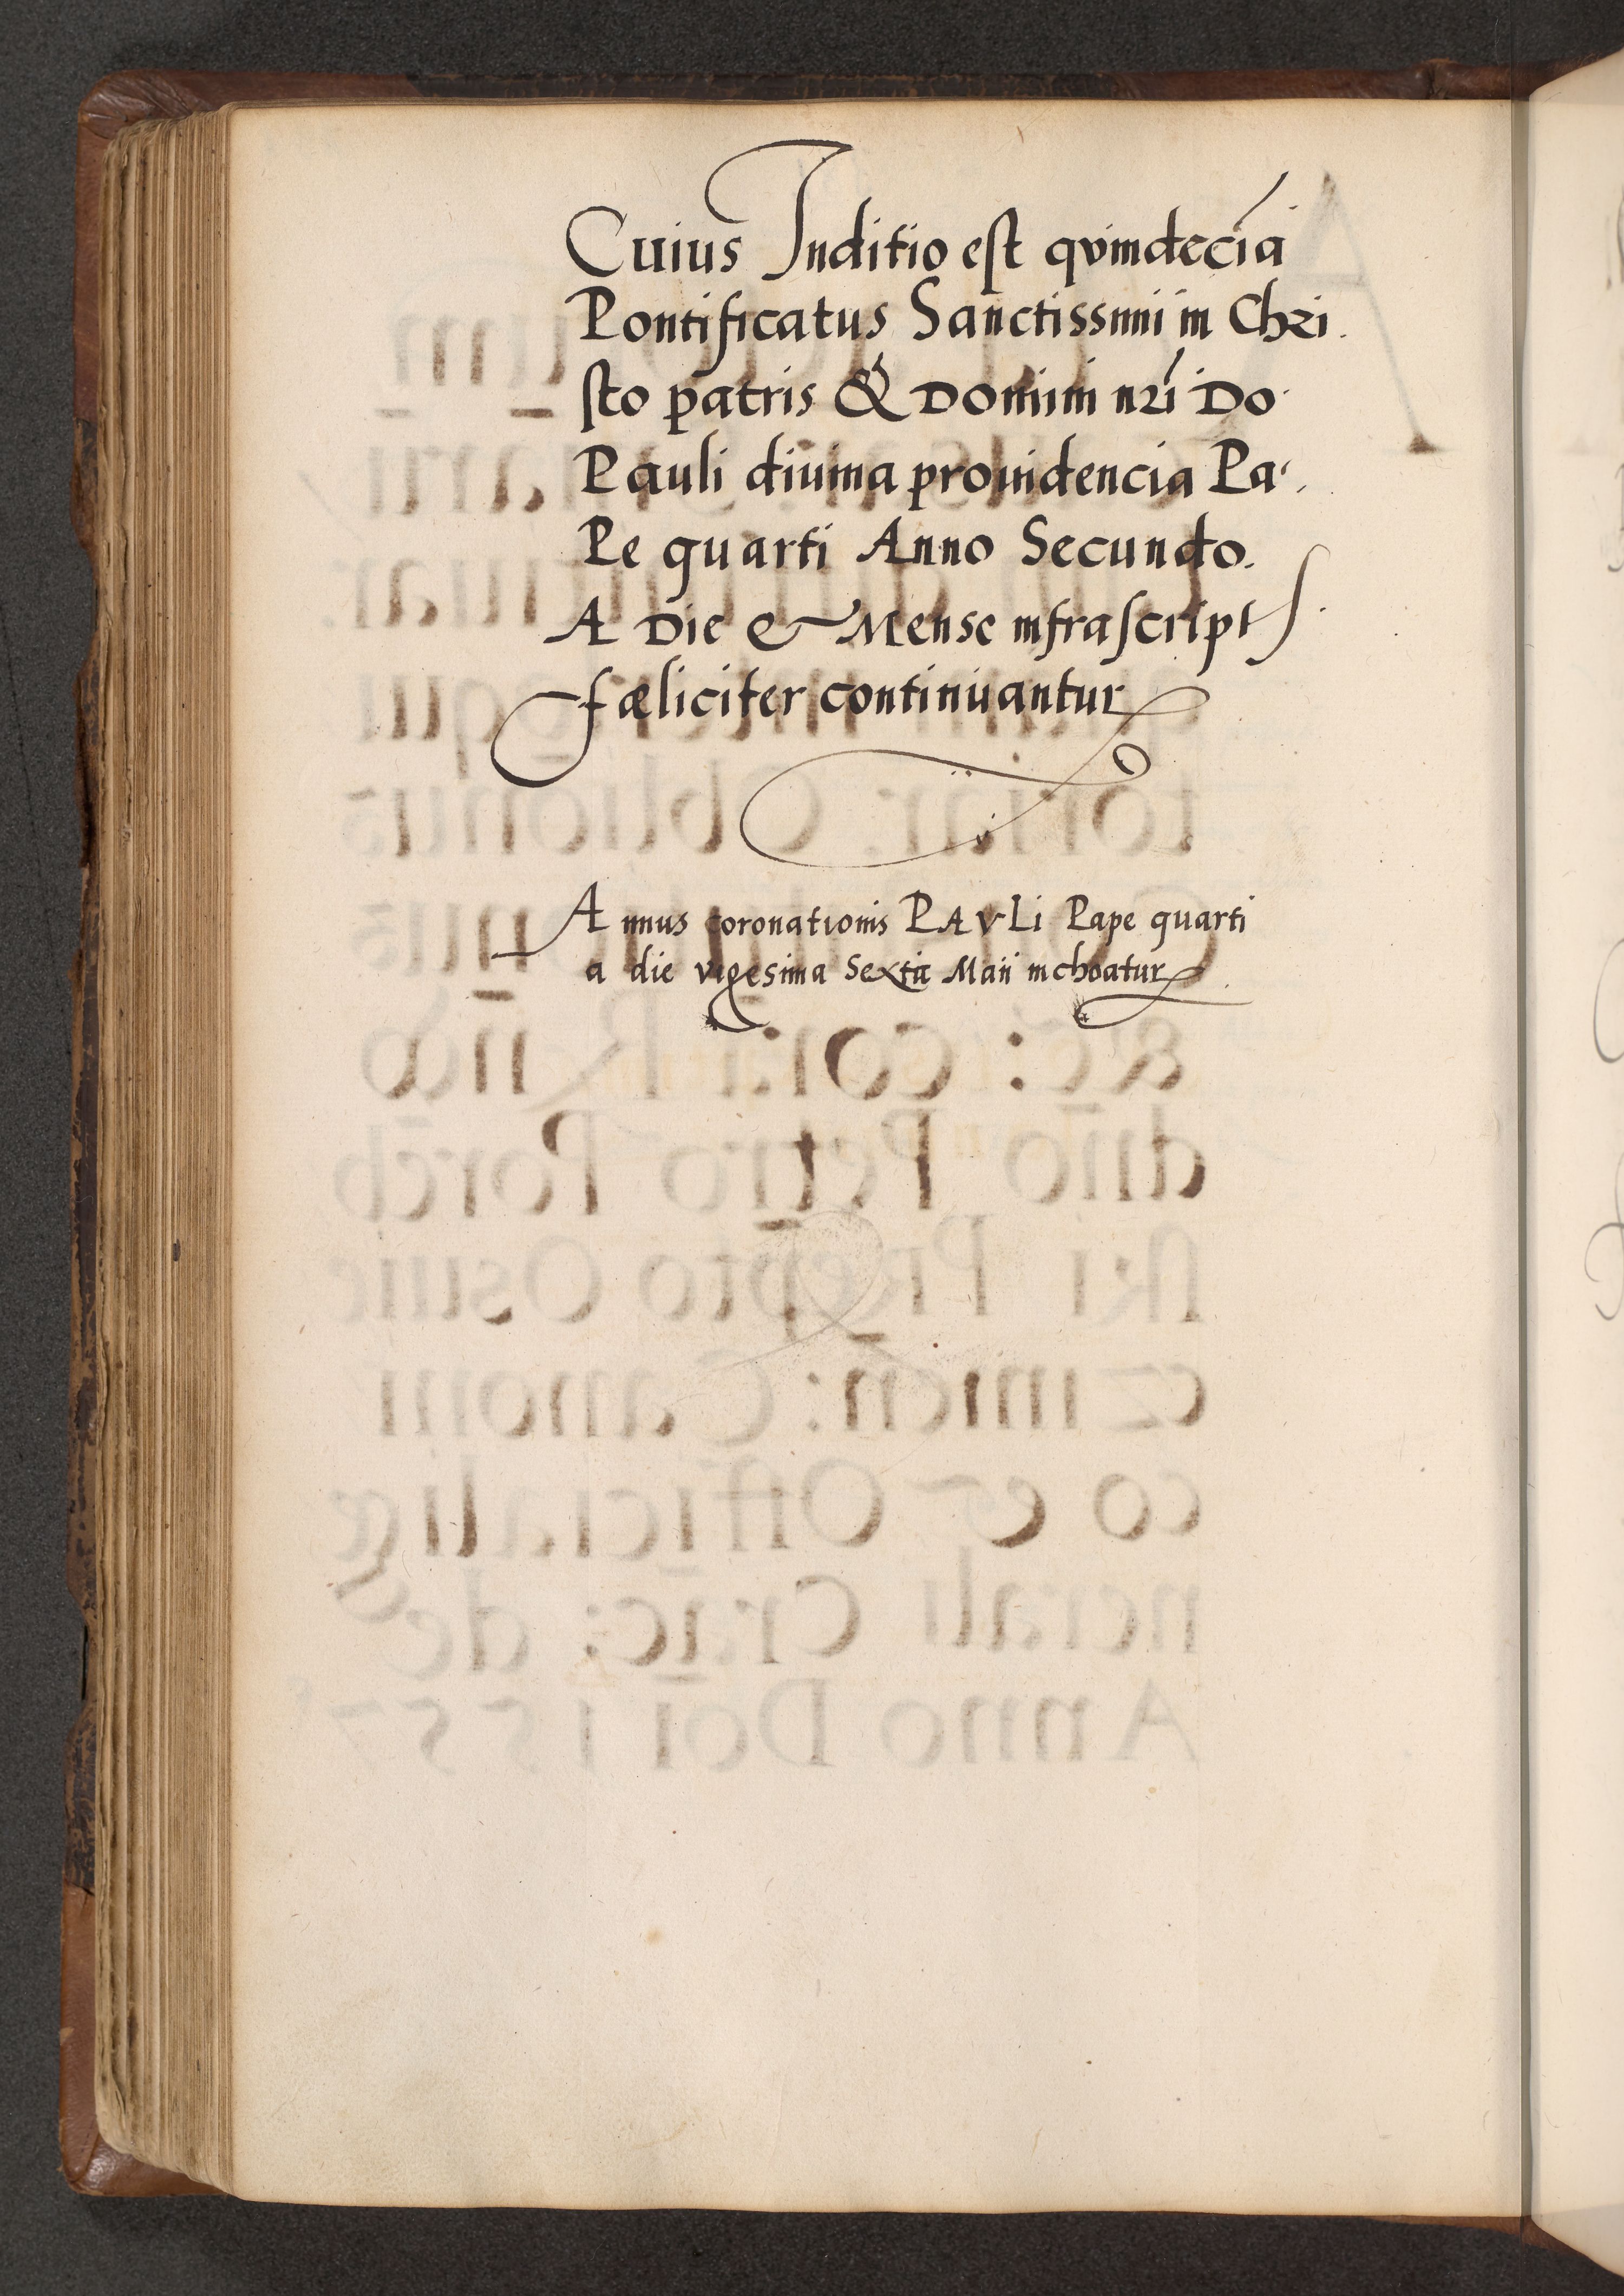 Cuius Inditio est qvindecīa
Pontificatus Sanctissimi in Chri.
sto patris & Domini nrī Do.
Pauli diuina prouidencia Pa.
Pe quarti Anno Secundo.
A Die & Mense infrascript
fæliciter continuantur
Annus coronationis PAVLi Pape quarti
a die vigesima Sexta Maii inchoatur